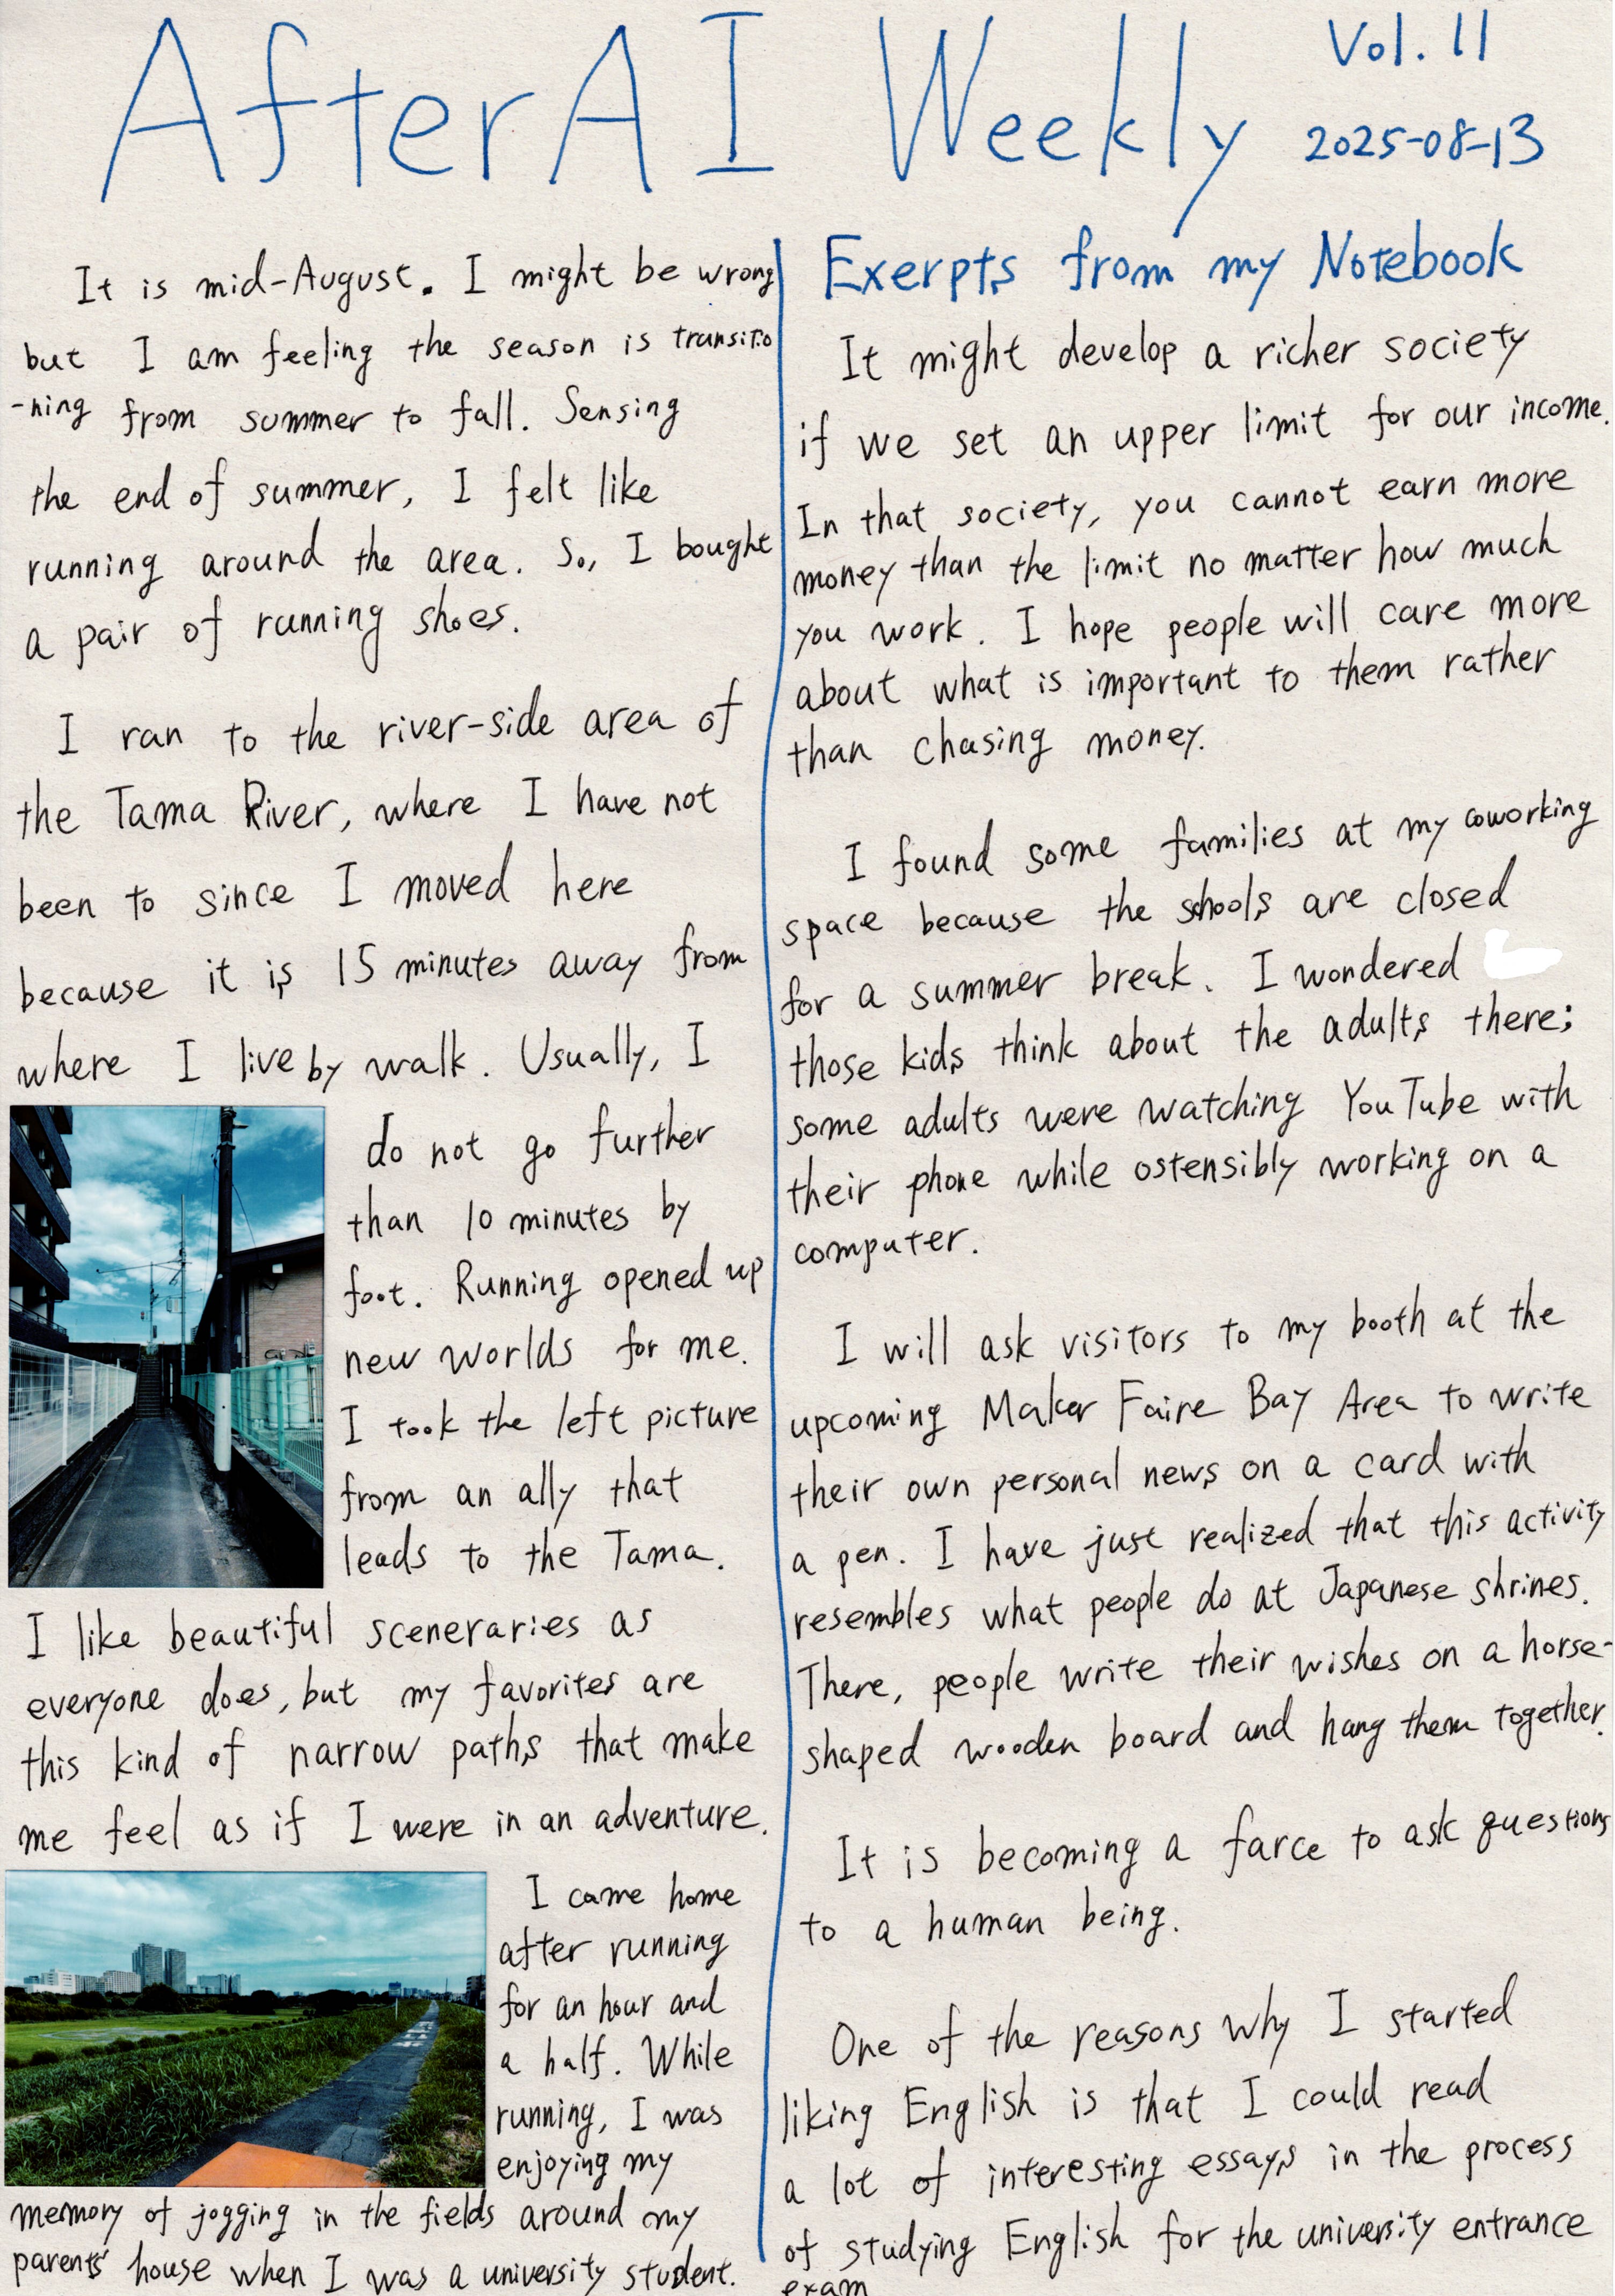 AfterAI Weekly
Vol. 11
2025-08-13
It is mid-August. I might be wrong
but I am feeling the season is transitio
-ning from summer to fall. Sensing
the end of summer, I felt like
running around the area. So, I bought
a pair of running shoes.
I ran to the river-side area of
the Tama River, where I have not
been to since I moved here
because it is 15 minutes away from
where I live by walk. Usually, I
do not go further
than 10 minutes by
foot. Running opened up
new worlds for me.
I took the left picture
from an ally that
leads to the Tama.
I like beautiful sceneraries as
everyone does, but my favorites are
this kind of narrow paths that make
me feel as if I were in an adventure.
I came home
after running
for an hour and
a half. While
running, I was
enjoying my
memory of jogging in the fields around my
parents' house when I was a university student.
Exerpts from my Notebook
It might develop a richer society
if we set an upper limit for our income.
In that society, you cannot earn more
money than the limit no matter how much
you work. I hope people will care more
about what is important to them rather
than chasing money.
I found some families at my coworking
space because the schools are closed
for a summer break. I wondered
those kids think about the adults there;
some adults were watching YouTube with
their phone while ostensibly working on a
computer.
I will ask visitors to my booth at the
upcoming Maker Faire Bay Area to write
their own personal news on a card with
a pen. I have just realized that this activity
resembles what people do at Japanese shrines.
There, people write their wishes on a horse-
shaped wooden board and hang them together.
It is becoming a farce to ask questions
to a human being.
One of the reasons why I started
liking English is that I could read
a lot of interesting essays in the process
of studying English for the university entrance
exam